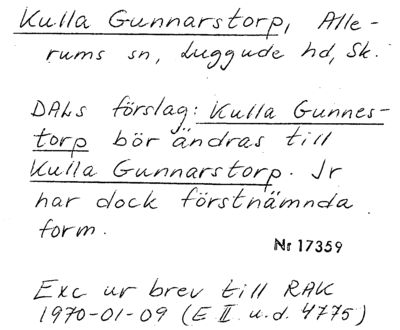 Kulla Gunnarstorp, Alle-
rums sn, Luggude hd, Sk.
DALs förslag: Kulla Gunnes-
torp bör ändras till
Kulla Gunnarstorp. Jr
har dock förstnämnda
form.
Nr 17359
Exc ur brev till RAK
1970-01-09 (E II u.d. 4775)